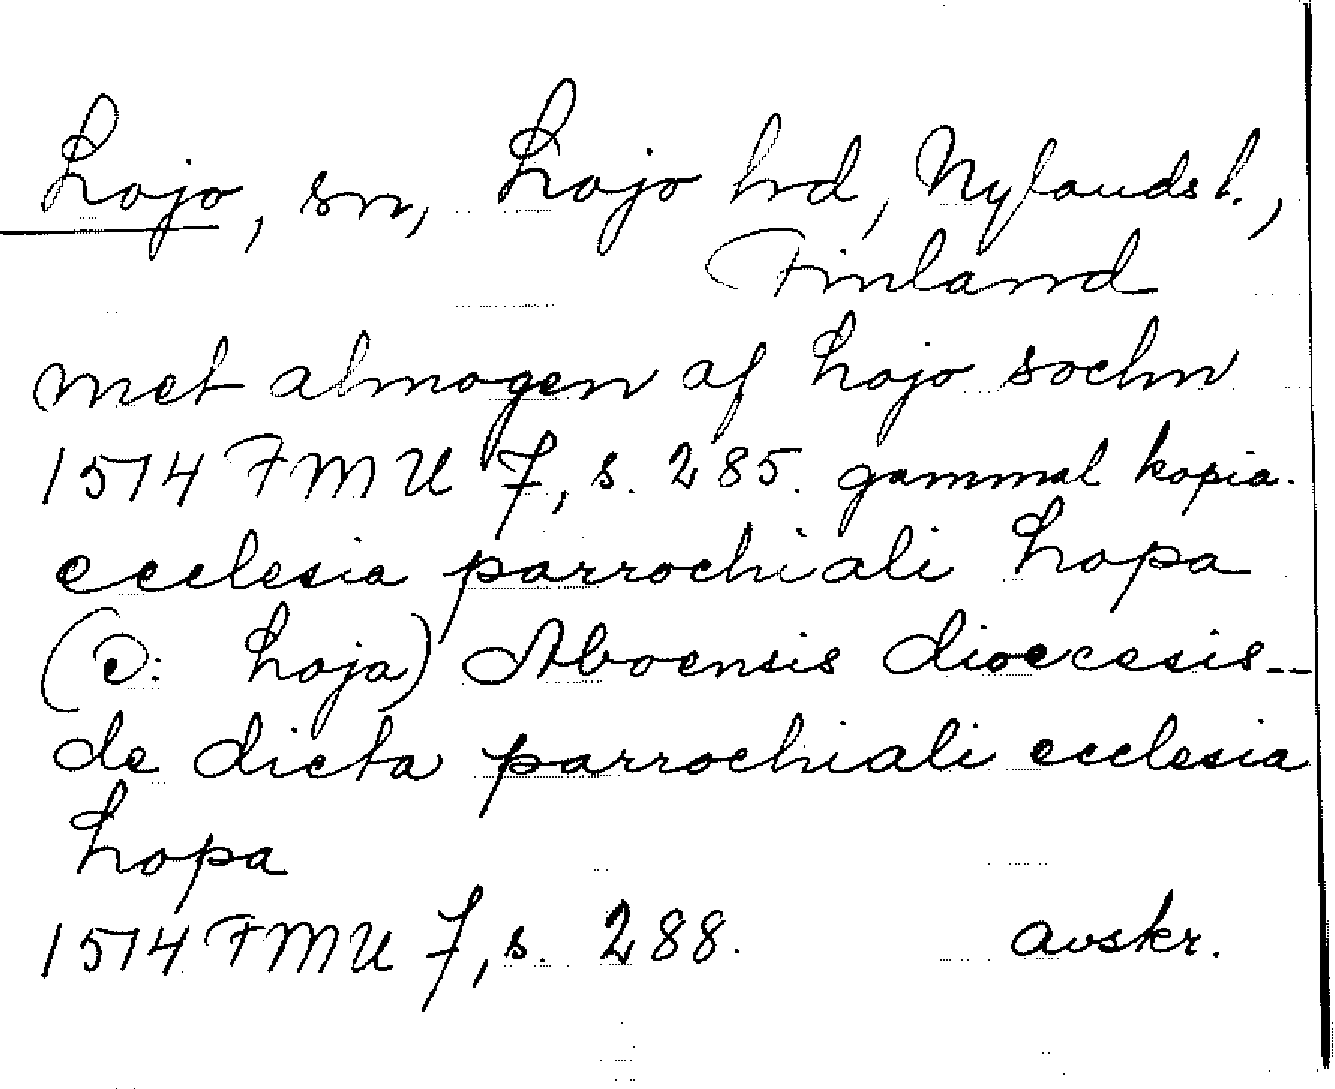 Lojo, sn, Lojo hrd, Nylands l.,
Finland
met almogen af Lojo sochn
1514 FMU 7, s. 285. gammal kopia.
ecclesia parrochiali Lopa
(ɔ: Loja) Aboensis diocesis--
de dicta parrochiali ecclesia
Lopa
1514 FMU 7, s. 288. avskr.